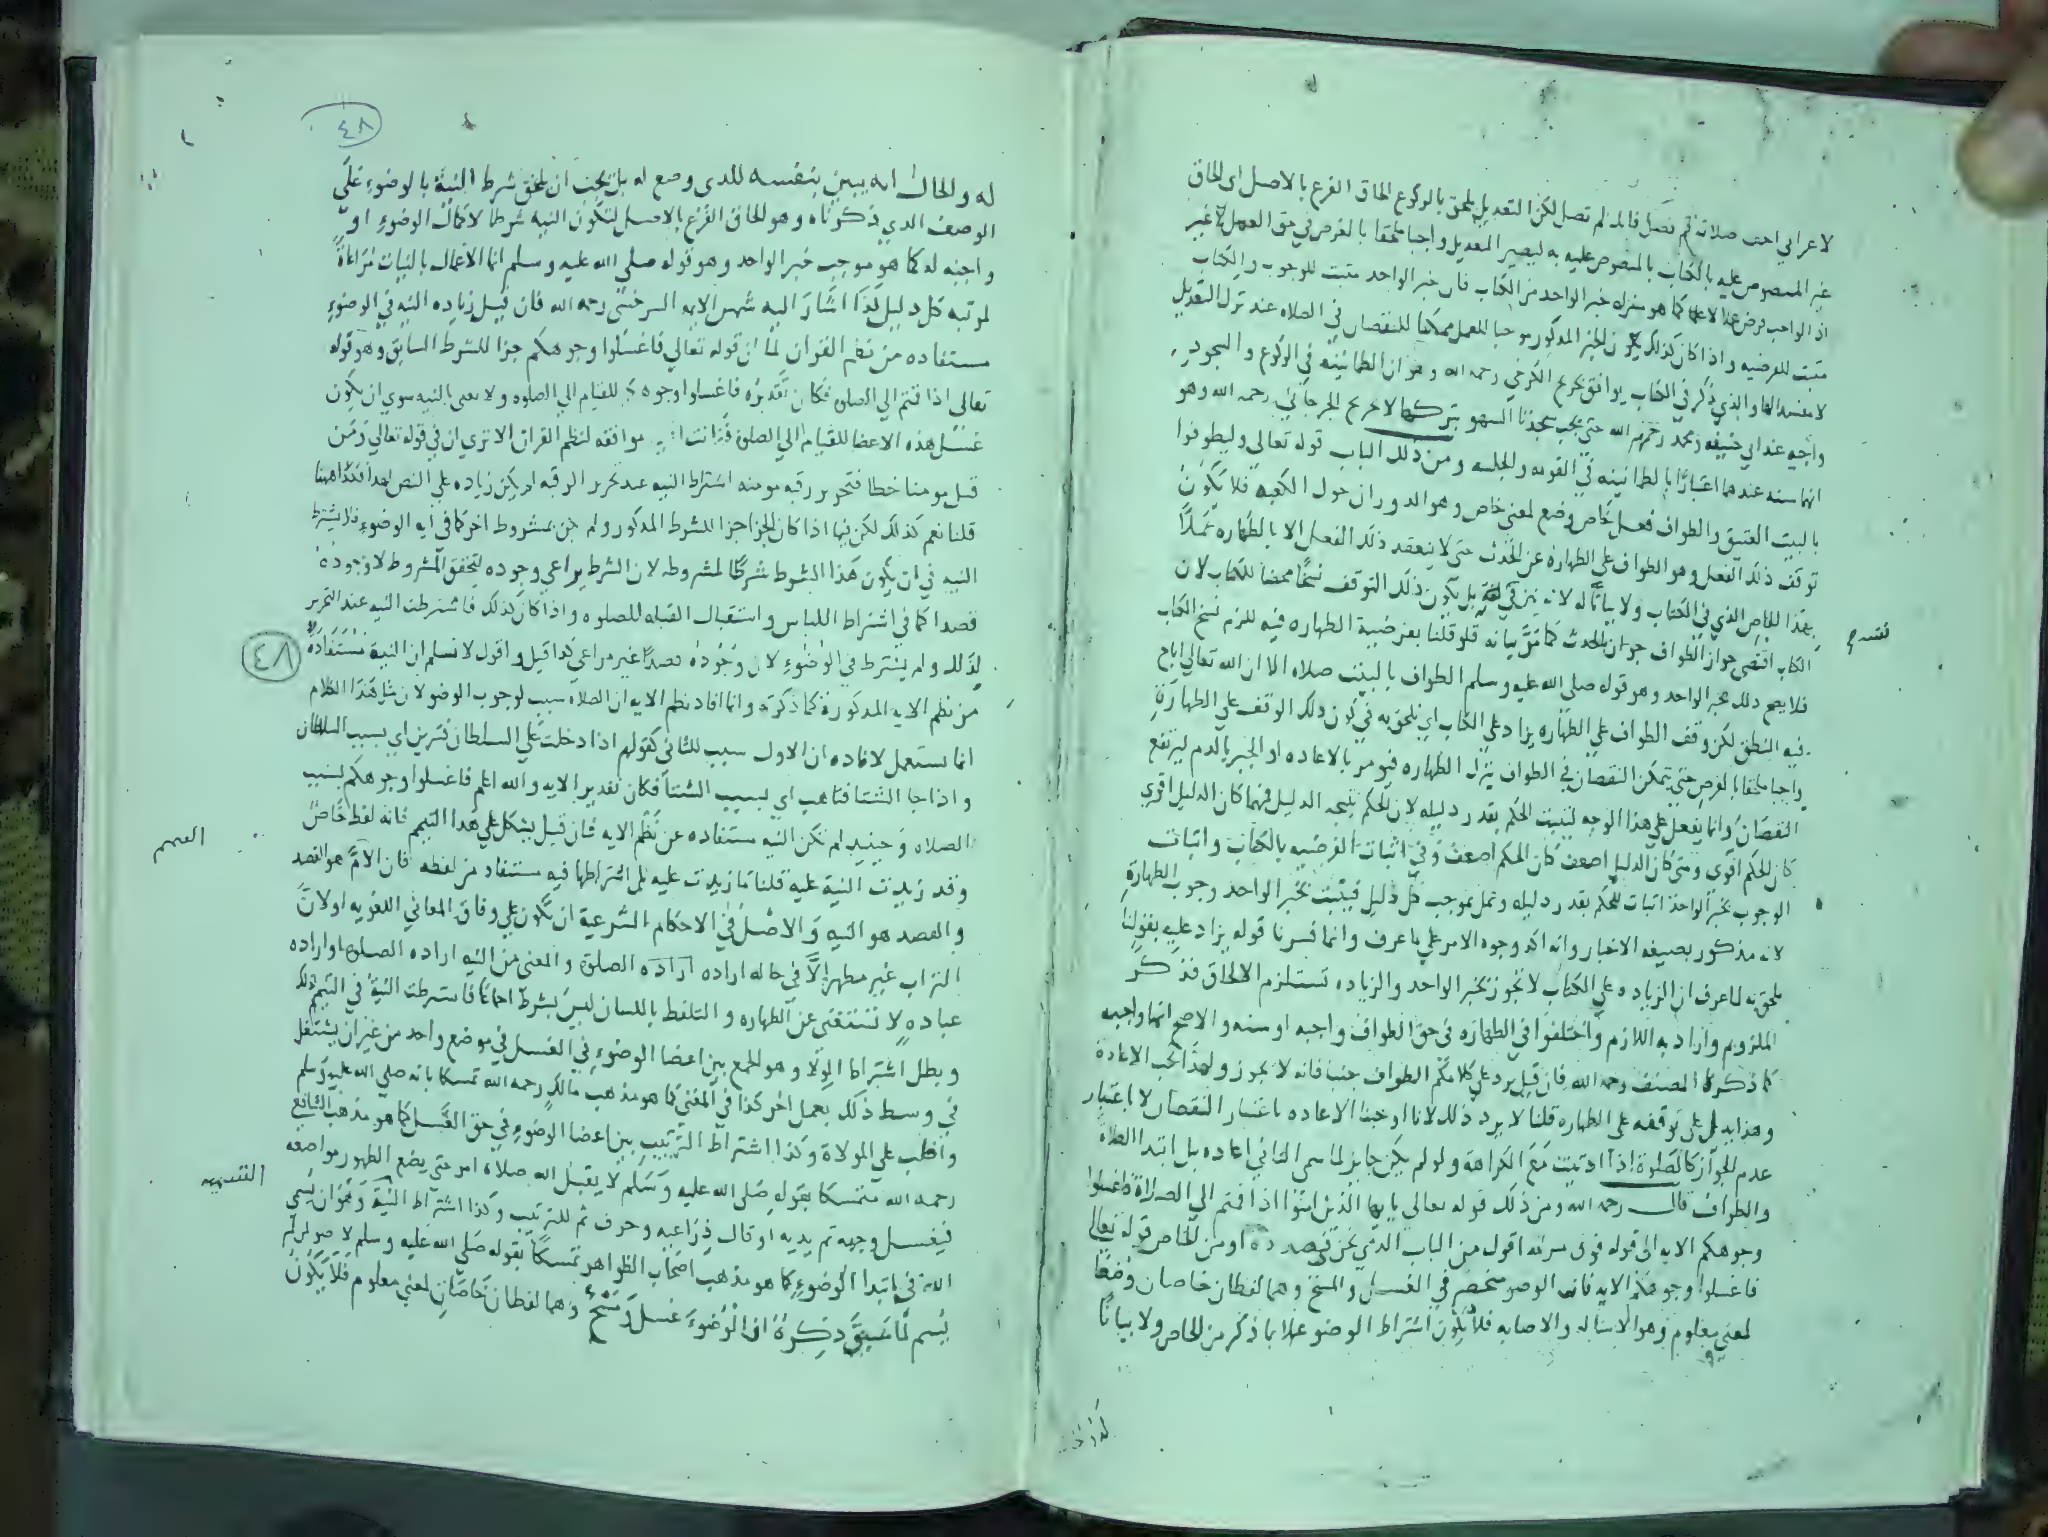 لاعرابي احب صلاته قم فصل فانك لم تصل لكن التعديل يلحق بالركوع الحاق الفرع بالاصل اي الحاق
غير المنصوص عليه بالكتاب بالمنصوص عليه به ليصير التعديل واجبا ملحقا بالفرض في حق العمل غير
الكتاب فان خبر الواحد مثبت للوجوب والكتاب
مثبت للفرضيه واذا كان كذلك يكون الخبر المذكور موجبا للعمل ممكنا للنقصان في الصلاه عند ترك التعديل
لا مفسدا لها والذي ذكر في الكتاب يوافق تخريج الكرخي رحمه الله وهو ان الطمانينه في الركوع والسجود
واجبه عند ابي حنيفه ومحمد رحمهم الله حتى يجب سجدتا السهو بتركها لا تخريج الجرجاني رحمه الله وهو
انها سنه عندهما اعتبارا بالطمانينه في القومه والجلسه ومن ذلك الباب قوله تعالى وليطوفوا
بالبيت العتيق والطواف فعل خاص وضع لمعنى خاص وهو الدوران حول الكعبه فلا يكون
توقف ذلك الفعل وهو الطواف على الطهارة عن الحدث حتى لا ينعقد ذلك الفعل الا بالطهاره عملا
بهذا الخاص الذي في الكتاب ولا بيانا له لانه بين في نفسه بل يكون ذلك التوقف نسخا محضا للكتاب لان
الكتاب اقتضى جواز الطواف مع الحدث كما مر بيانه فلو قلنا بفرضية الطهاره فيه للزم نسخ الكتاب
فلا يصح ذلك بخبر الواحد وهو قوله صلى الله عليه وسلم الطواف بالبيت صلاه الا ان الله تعالى اباح
فيه النطق لكن وقف الطواف على الطهاره يزاد على الكتاب اي يلحق به في كون ذلك الوقف على الطهارة
واجبا ملحقا بالفرض حتى يتمكن النقصان في الطواف بترك الطهاره فيومر بالاعاده او الجبر بالدم ليرتفع
النقصان وانما يفعل على هذا الوجه ليثبت الحكم بقدر دليله لان الحكم نتيجه الدليل فمهما كان الدليل اقوى
كان الحكم اقوى ومتى كان الدليل اضعف كان الحكم اضعف وفي اثبات الفرضيه بالكتاب واثبات
الوجوب بخبر الواحد اثبات للحكم بقدر دليله وعمل بموجب كل دليل فيثبت بخبر الواحد وجوب الطهارة
لانه مذكور بصيغه الاخبار وانه اكد وجوه الامر على ما عرف وانما فسرنا قوله يزاد عليه بقولنا
يلحق به لما عرف ان الزياده على الكتاب لا تجوز بخبر الواحد والزياده تستلزم الالحاق فذكر
الملزوم واراد به اللازم واختلفوا في الطهاره في حق الطواف واجبه او سنه والاصح انها واجبه
كما ذكره المصنف رحمه الله فان قيل يرد على كلامكم الطواف جنبا فانه لا يجوز ولهذا تجب الاعادة
وهذا يدل على توقفه على الطهاره قلنا لا يرد ذلك لانا اوجبنا الاعاده باعتبار النقصان لا باعتبار
عدم الجواز كالصلوة اذا اديت مع الكراهة ولو لم يكن جايز لما سمى الثاني اعاده بل ابتدا الصلاة
والطواف قال رحمه الله ومن ذلك قوله تعالى يايها الذين امنوا اذا قمتم الي الصلاة فاغسلوا
وجوهكم الايه الى قوله اقول من الباب الذي نحن او من الخاص قوله تعالى
فاغسلوا وجوهكم الايه فانه الوضو منحصر في الغسل والمسح وهما لفظان خاصان وضعا
لمعنى معلوم وهو الاسالة والاصابه فلا يكون اشتراط الوضو عملا بما ذكر من الخاص ولا بيانا
٤٨
له والحال انه يبين بنفسه للذي وضع له بل يجب ان يلحق شرط النية بالوضوء على
الوصف الذي ذكرناه وهو الحاق الفرع بالاصل لتكون النيه شرطا لاكمال الوضوء او
واجبه له كما هو موجب خبر الواحد وهو قوله صلى الله عليه وسلم انما الاعمال بالنيات مراعاة
لمرتبه كل دليل كذا اشار اليه شمس الايمه السرخسي رحمه الله فان قيل زياده النيه في الوضوء
مستفاده من نظم القران لما ان قوله تعالى فاغسلوا وجوهكم جزا للشرط السابق وهو قوله
تعالى اذا قمتم الي الصلوه فكان تقديره فاغسلوا وجوهكم للقيام الي الصلوه ولا يعني بالنيه سوي ان يكون
غسل هذه الاعضا للقيام الي الصلوة فكانت موافقه لنظم القران الا تري ان في قوله تعالى ومن
قتل مومنا خطا فتحرير رقبه مومنه اشتراط النيه عند تحرير الرقبه لم يكن زياده على النص فكذا ههنا
قلنا نعم كذلك لكن فيما اذا كان الجزا جزا للشرط المذكور ولم يكن بمشروط اخر كما في ايه الوضوء فلا يشترط
النيه في ان يكون هذا الشرط شرطا لمشروطه لان الشرط يراعى وجوده لتحقق المشروط لا وجوده
قصدا كما في اشتراط اللباس واستقبال القبله للصلوه واذا كان كذلك فاشترطت النيه عند التحرير
لذلك ولم يشترط في الوضوء لان وجوده قصدا غير مراعى كذا قيل واقول لا نسلم ان النية مستفادة
من نظم الايه المذكورة كما ذكرتم وانما افاد نظم الايه ان الصلاه سبب لوجوب الوضو لان مثل هذا الكلام
انما يستعمل لافاده ان الاول سبب للثاني كقولهم اذا دخلت على السلطان فتزين اي بسبب السلطان
واذا جا الشتا فتاهب اي بسبب الشتا فكان تقدير الايه والله اعلم فاغسلوا وجوهكم بسبب
الصلاه وحينيذ لم تكن النيه مستفاده عن نظم الايه فان قيل يشكل على هذا التيمم فانه لفظ خاص
وقد زيدت النية عليه قلنا ما زيدت عليه بل اشتراطها فيه مستفاد من لفظه فان الام هو القصد
والقصد هو النيه والاصل في الاحكام الشرعية ان تكون على وفاق المعاني اللغويه او لان
التراب غير مطهر الا في حاله اراده الصلوة والمعنى من النيه اراده الصلوه او اراده
عباده لا تستغنى عن الطهاره والتلفظ باللسان ليس بشرط اجماعا فاشترطت النية في التيمم لذلك
وبطل اشتراط الولا وهو الجمع بين اعضا الوضوء في الغسل في موضع واحد من غير ان يشتغل
في وسط ذلك بعمل اخر كذا في المغني كما هو مذهب مالك رحمه الله تمسكا بانه صلى الله عليه وسلم
واظب على الموالاة وكذا اشتراط الترتيب بين اعضا الوضوء في حق الغسل كما هو مذهب الشافعي
رحمه الله متمسكا بقوله صلى الله عليه وسلم لا يقبل الله صلاة امر حتى يضع الطهور مواضعه
فيغسل وجهه ثم يديه او قال ذراعيه وحرف ثم للترتيب وكذا اشتراط التسمية وهو ان يسمي
الله في ابتدا الوضوء كما هو مذهب اصحاب الظواهر تمسكا بقوله صلى الله عليه وسلم لا وضو لمن لم
يسم لما سبق ذكره ان الوضوء غسل ومسح وهما لفظان خاصان لمعنى معلوم فلا يكون
٤٨